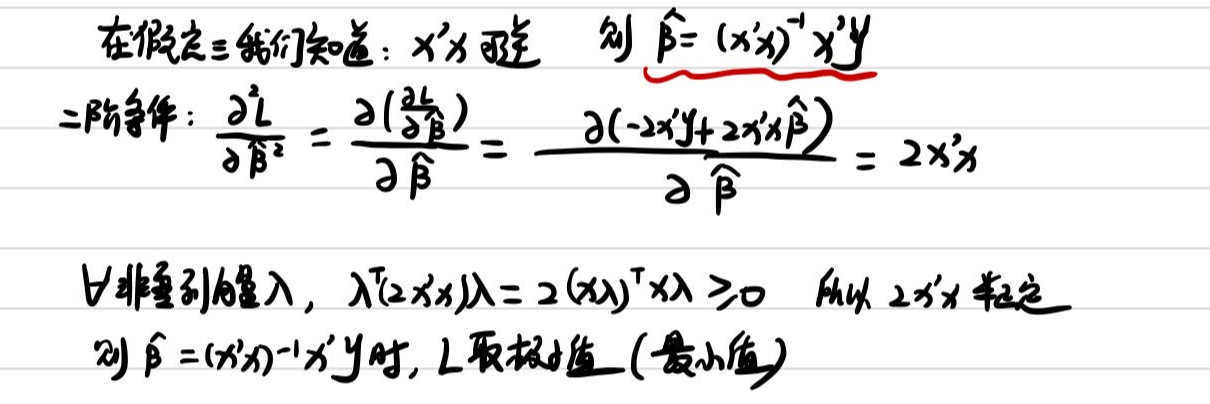 在假定三我们知道：x'x可逆 则 β̂ = (x'x)⁻¹x'y
二阶条件：∂²L/∂β̂² = ∂(∂L/∂β̂)/∂β̂ = ∂(-2x'y+2x'xβ̂)/∂β̂ = 2x'x
∀非零列向量λ，λᵀ(2x'x)λ = 2(xλ)ᵀxλ ≥ 0 所以 2x'x 半正定
则 β̂ = (x'x)⁻¹x'y时，L取极小值（最小值）